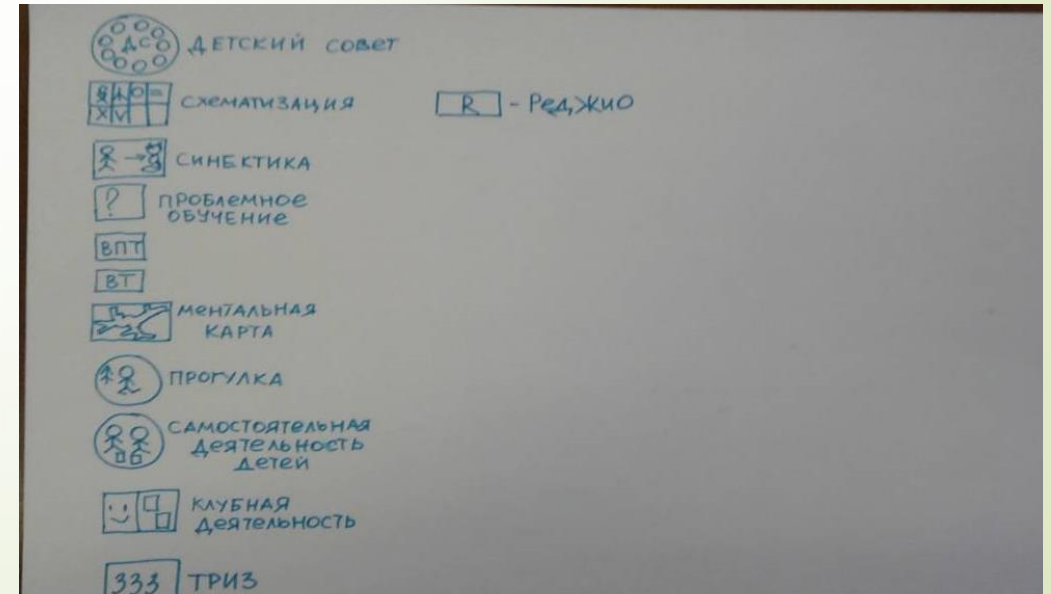 ДС ДЕТСКИЙ СОВЕТ
СХЕМАТИЗАЦИЯ
R - РЕДЖИО
СИНЕКТИКА
? ПРОБЛЕМНОЕ
ОБУЧЕНИЕ
ВПТ
ВТ
МЕНТАЛЬНАЯ
КАРТА
ПРОГУЛКА
САМОСТОЯТЕЛЬНАЯ
ДЕЯТЕЛЬНОСТЬ
ДЕТЕЙ
КЛУБНАЯ
ДЕЯТЕЛЬНОСТЬ
333 ТРИЗ